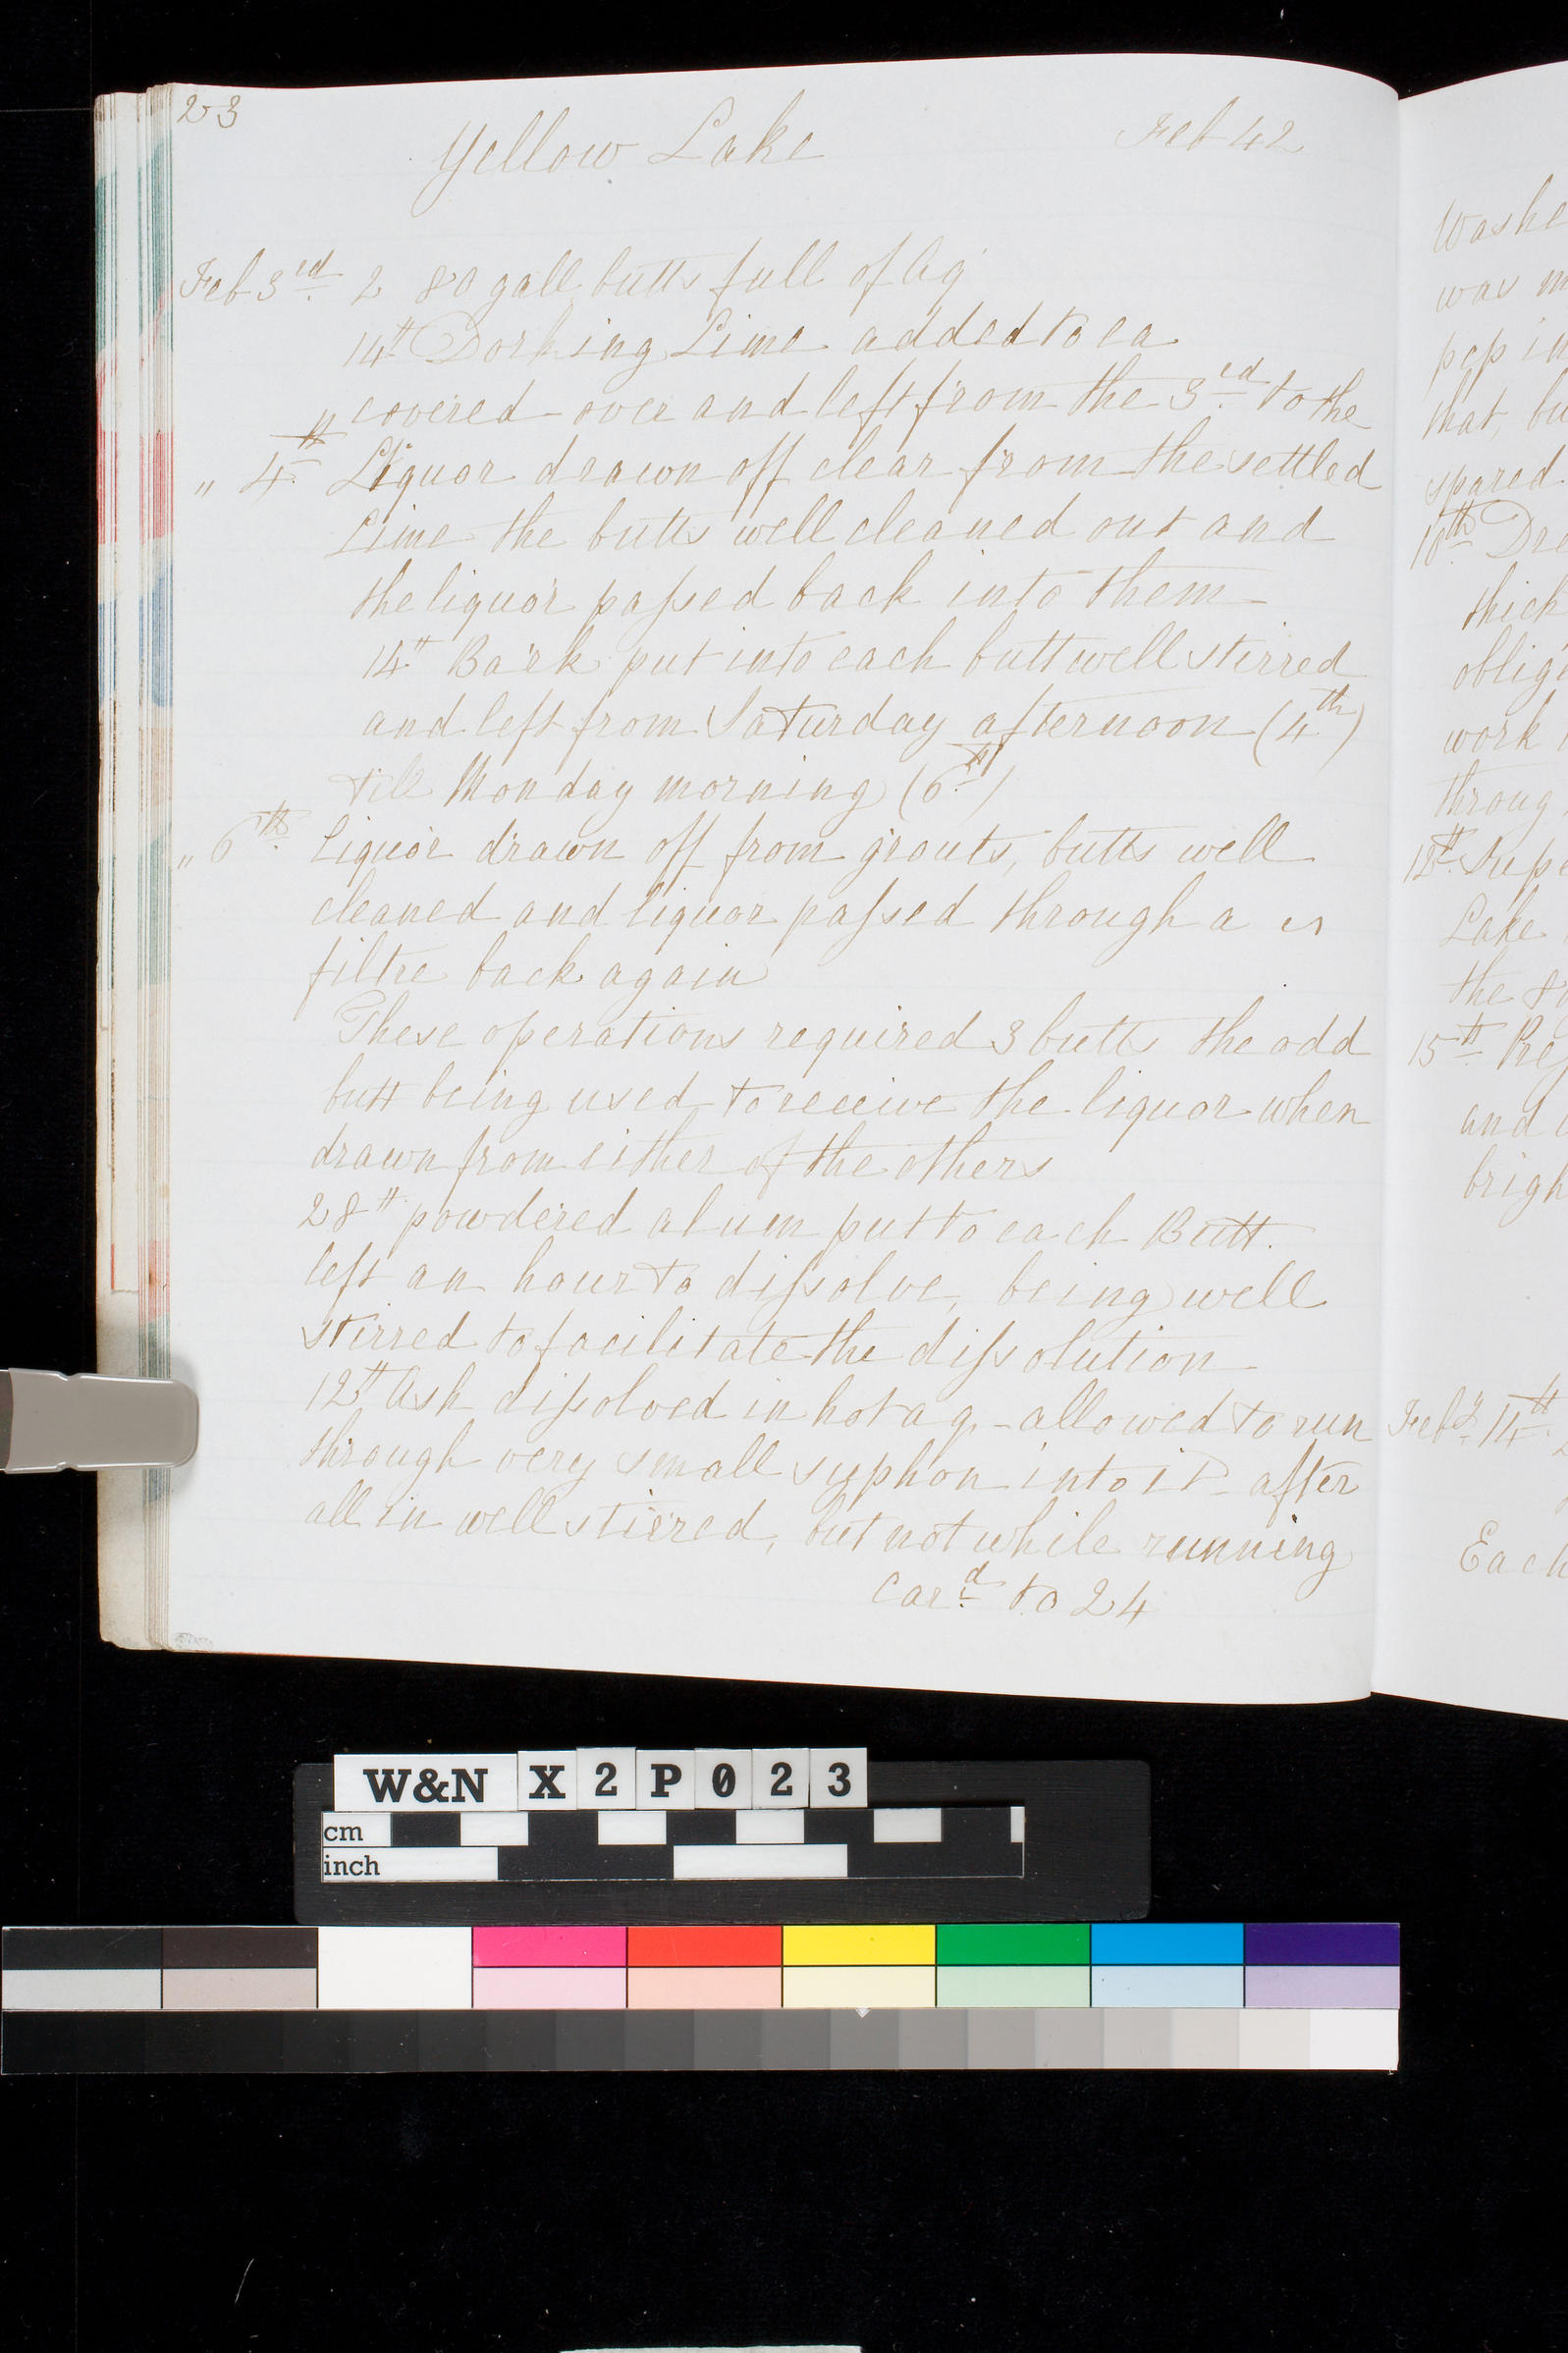 23
Yellow Lake Feb 42
Feb 3rd 2 80 gall butts full of Aq
14 lb Dorking Lime added to ea
covered over and left from the 3rd to the
" 4th Liquor drawn off clear from the settled
Lime the butts well cleaned out and
the liquor passed back into them
14 lb Bark put into each butt well stirred
and left from Saturday afternoon (4th)
till Monday morning (6th)
" 6th Liquor drawn off from grouts, butts well
cleaned and liquor passed through a
filtre back again
These operations required 3 butts the odd
butt being used to receive the liquor when
drawn from either of the others
28 lb powdered alum put to each Butt.
left an hour to dissolve, being well
stirred to facilitate the dissolution
12 lb Ash dissolved in hot aq. - allowed to run
through very small syphon into it - after
all in well stirred, but not while running
Card to 24
Washe
was m
pep in
that, bu
spared.
10th Dre
thick
oblig
work
throug
13th Supe
Lake
the 8
15th
and
brigh
Feb 14th
Each
W&N X2P023
cm
inch